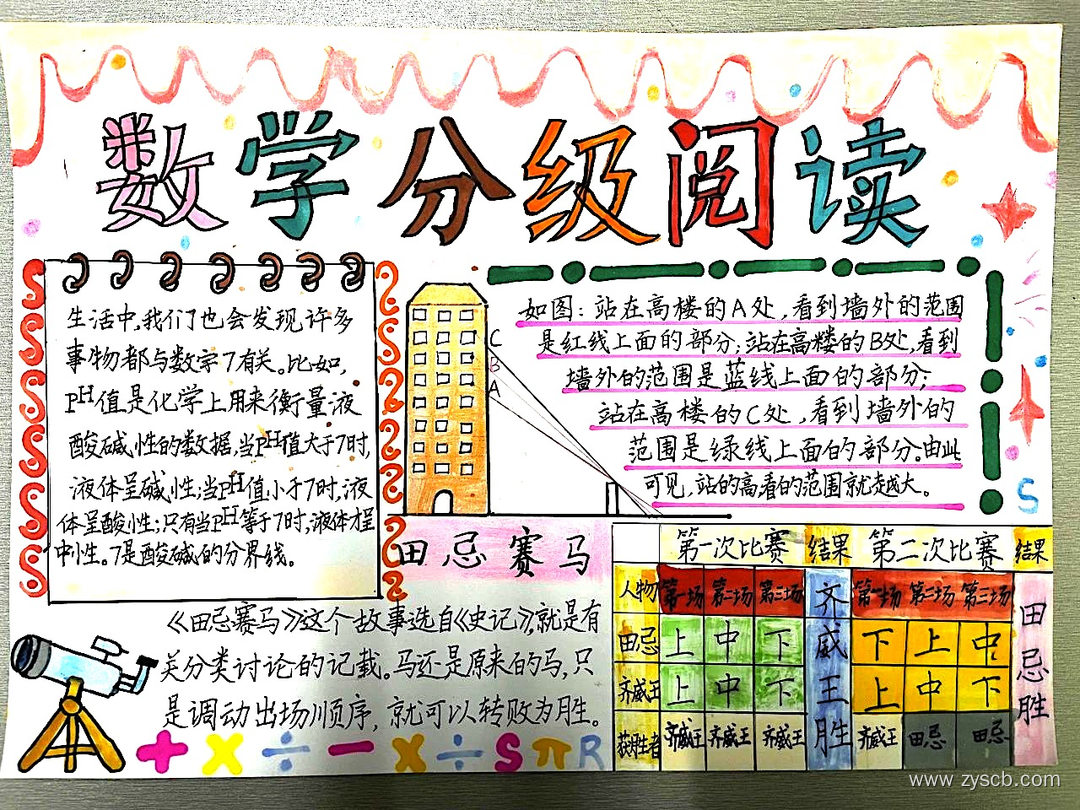 数学分级阅读
生活中,我们也会发现许多
事物都与数字7有关。比如,
PH值是化学上用来衡量液
酸碱性的数据,当PH值大于7时,
液体呈碱性;当PH值小于7时,液
体呈酸性;只有当PH等于7时,液体才呈
中性。7是酸碱的分界线。
C
B
A
如图:站在高楼的A处,看到墙外的范围
是红线上面的部分;站在高楼的B处,看到
墙外的范围是蓝线上面的部分;
站在高楼的C处,看到墙外的
范围是绿线上面的部分。由此
可见,站的高看的范围就越大。
田忌赛马
《田忌赛马》这个故事选自《史记》,就是有
关分类讨论的记载。马还是原来的马,只
是调动出场顺序,就可以转败为胜。
+ × ÷ - × ÷ S π R
第一次比赛 结果 第二次比赛 结果
人物 第一场 第二场 第三场 齐威王胜 第一场 第二场 第三场 田忌胜
田忌 上 中 下 下 上 中
齐威王 上 中 下 上 中 下
获胜者 齐威王 齐威王 齐威王 齐威王 田忌 田忌
S
www.zyscb.com